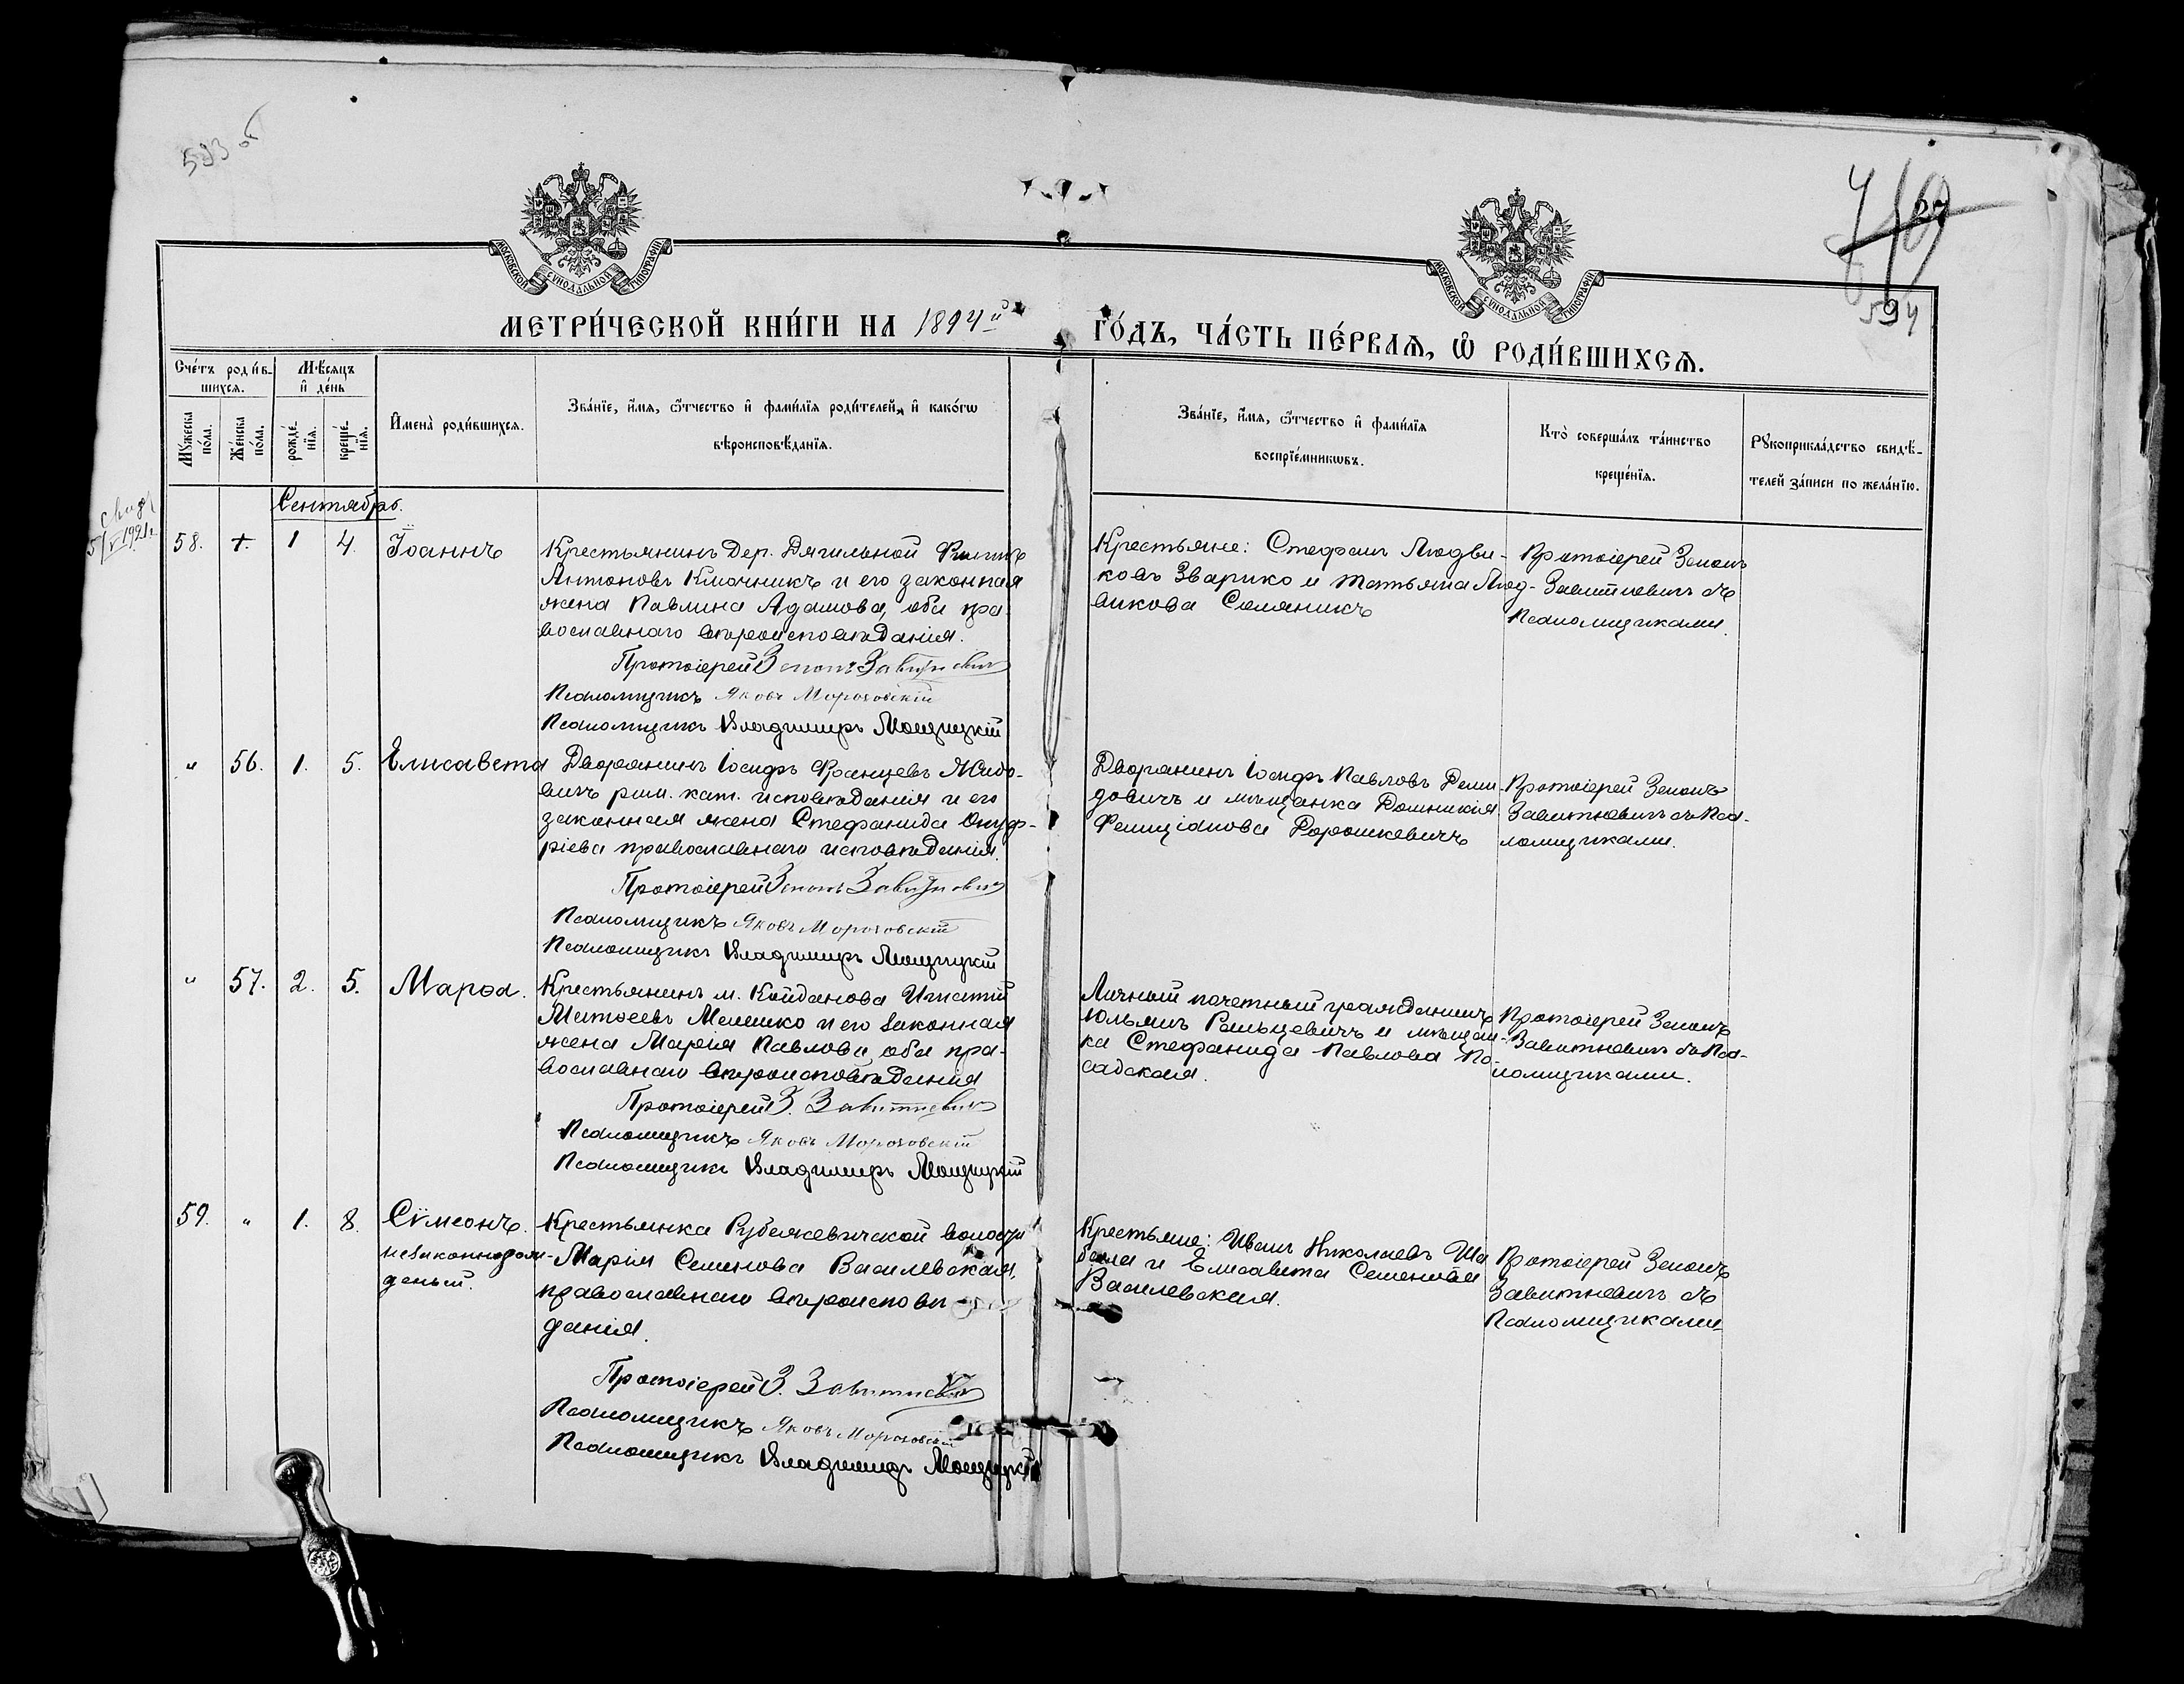 593 об
594
МОСКОВСКОЙ СѴНОДАЛЬНОЙ ТИПОГРАФІИ
МОСКОВСКОЙ СѴНОДАЛЬНОЙ ТИПОГРАФІИ
МЕТРИ́ЧЕСКОЙ КНИ́ГИ НА 1894й ГО́ДЪ, ЧА́СТЬ ПЕ́РВАѦ, Ѡ҆ РОДИ́ВШИХСѦ.
Сче́тъ роди́в-
шихся.
Мѣ́сяцъ
и҆ де́нь
Мꙋ́жеска по́ла.
Же́нска по́ла.
рожде́-
нїя.
креще́-
нїя.
И҆мена̀ роди́вшихся.
Зва́нїе, и҆́мя, ѻ҆́тчество и҆ фами́лїя роди́телей, и҆ како́гѡ
вѣроисповѣ́данїя.
Зва́нїе, и҆́мя, ѻ҆́тчество и҆ фами́лїя
воспрїе́мникѡвъ.
Кто̀ соверша́лъ та́инство
креще́нїя.
Рꙋкоприкла́дство свидѣ́-
телей за́писи по жела́нїю.
Сентябрь.
58. 1 4. Іоаннъ
Крестьянинъ дер. Дягильной Филиппъ
Антоновъ Ключникъ и его законная
жена Павлина Адамова, оба пра-
вославнаго вѣроисповѣданія.
Протоіерей Зенонъ Завитневичъ
Псаломщикъ Яковъ Мороховскій
Псаломщикъ Владимиръ Мощицкій
Крестьяне: Стефанъ Людви-
ковъ Зварико и Татьяна Люд-
викова Саляникъ
Протоіерей Зенонъ
Завитневичъ съ
Псаломщиками.
" 56. 1. 5. Елисавета
Дворянинъ Іосифъ Францевъ Жидо-
вичъ рим. кат. исповѣданія и его
законная жена Стефанида Онуф-
ріева православнаго исповѣданія.
Протоіерей Зенонъ Завитневичъ
Псаломщикъ Яковъ Мороховскій
Псаломщикъ Владимиръ Мощицкій
Дворянинъ Іосифъ Павловъ Деми-
довичъ и мѣщанка Домникія
Фелиціанова Дорошкевичъ
Протоіерей Зенонъ
Завитневичъ съ Пса-
ломщиками.
" 57. 2. 5. Марѳа.
Крестьянинъ м. Койданова Игнатій
Матѳеевъ Мелешко и его законная
жена Марія Павлова, оба пра-
вославнаго вѣроисповѣданія
Протоіерей З. Завитневичъ
Псаломщикъ Яковъ Мороховскій
Псаломщикъ Владимиръ Мощицкій
Личный почетный гражданинъ
Юльянъ Ральцевичъ и мѣщан-
ка Стефанида Павлова По-
садская.
Протоіерей Зенонъ
Завитневичъ съ Пса-
ломщиками.
59. " 1. 8. Сѵмеонъ.
незаконнорож-
денный.
Крестьянка Рубежевичской волости
Марія Семенова Василевская,
православнаго вѣроисповѣ-
данія.
Протоіерей З. Завитневичъ
Псаломщикъ Яковъ Мороховскій
Псаломщикъ Владимиръ Мощицкій
Крестьяне: Иванъ Николаевъ Ша
бала и Елисавета Семенова
Василевская.
Протоіерей Зенонъ
Завитневичъ съ
Псаломщиками.